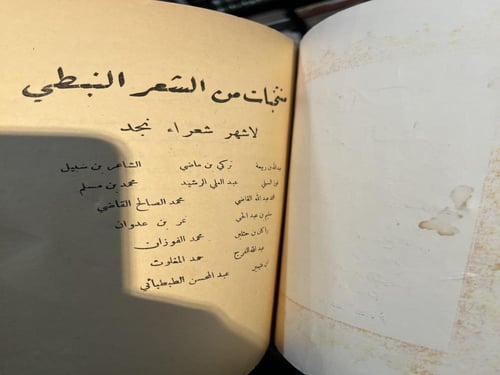 منتخبات من الشعر النبطي
لاشهر شعراء نجد
عبدالله بن ربيعة تركي بن ماضي الشاعر بن سبيل
عبد العلي الرشيد محمد بن مسلم
محمد عبدالله القاضي محمد الصالح القاضي
سليم بن عبد الحي نمر بن عدوان
راكان بن حثلين محمد الفوزان
عبدالله الفرج حمد المغلوث
عبد المحسن الطبطبائي